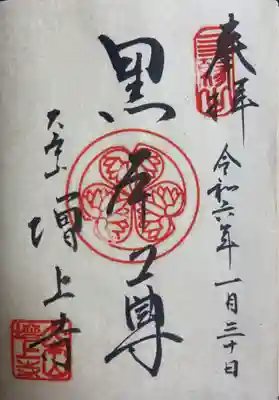 奉拝
令和六年一月二十日
黒本尊
大本山
増上寺